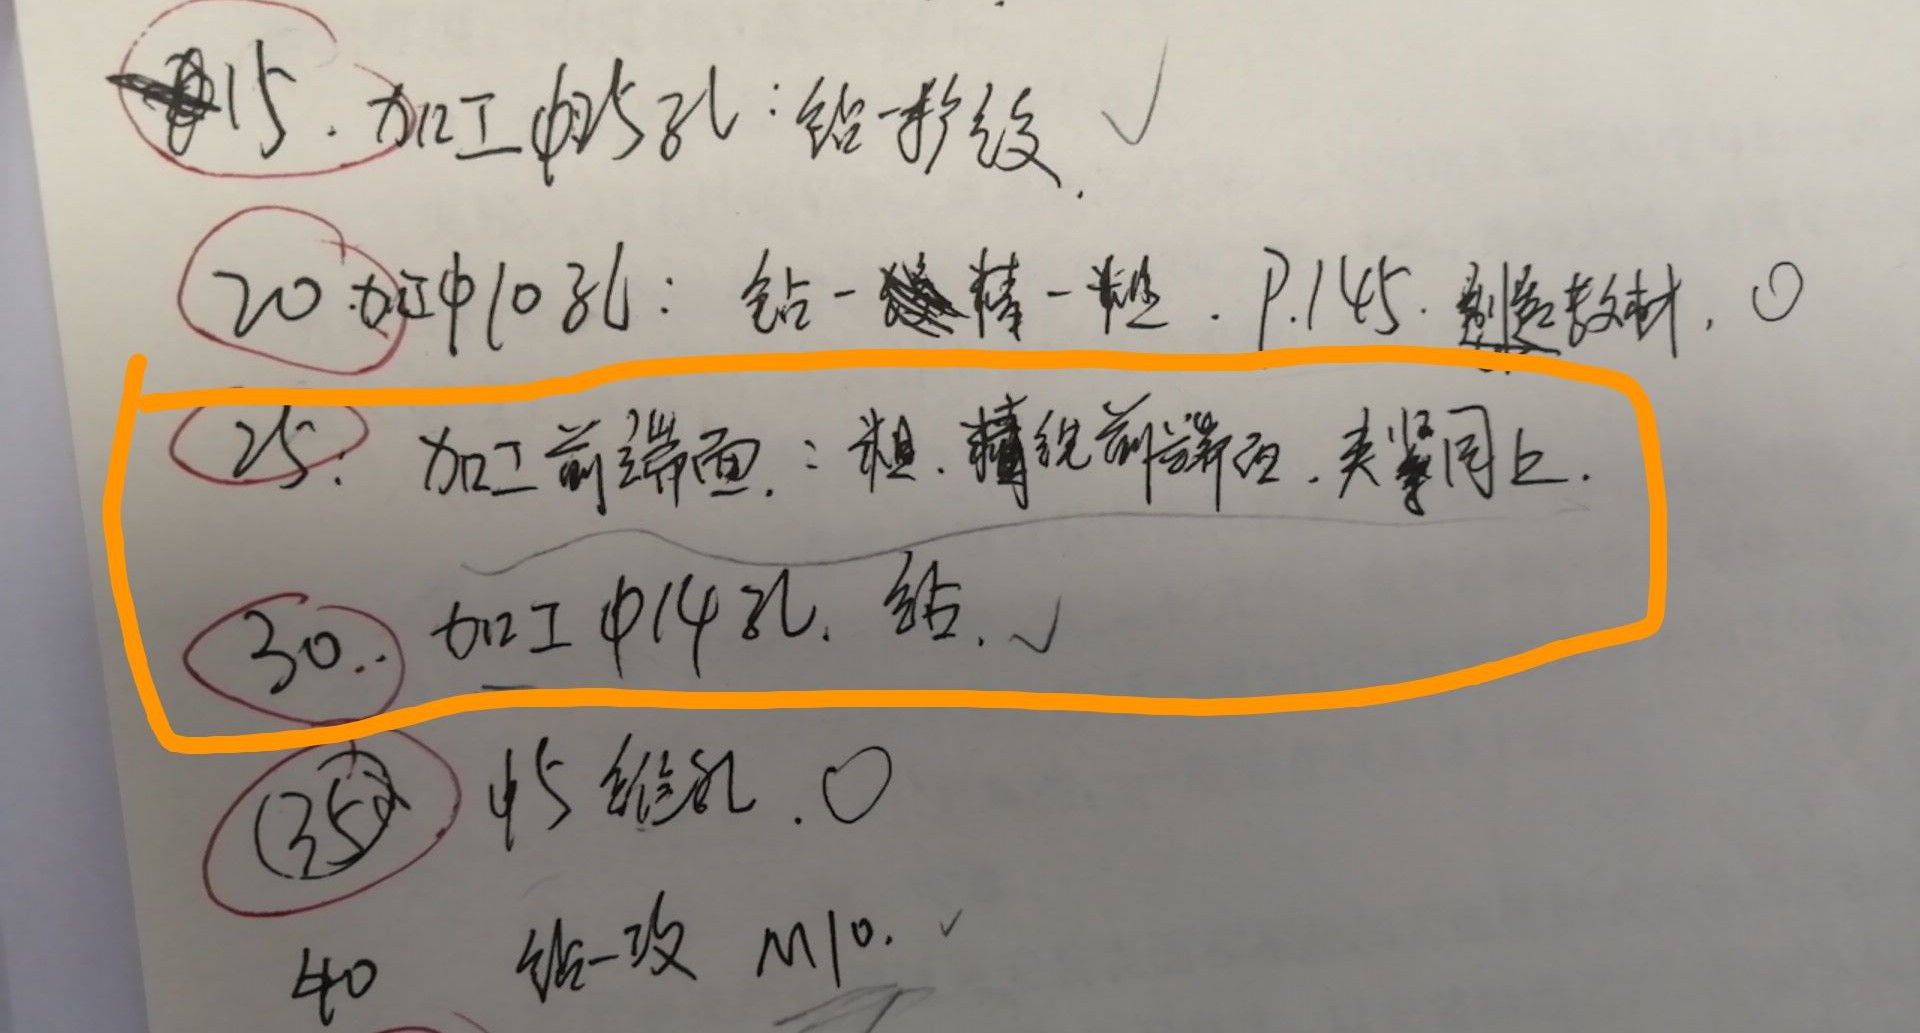 15. 加工φ25孔：钻一扩铰.
20. 加工φ10孔：钻-精-粗. P.145. 制造教材.
25. 加工前端面.：粗.精铣前端面.夹紧同上.
30.. 加工φ14孔. 钻.
35 φ5锥孔.
40 钻-攻 M10.